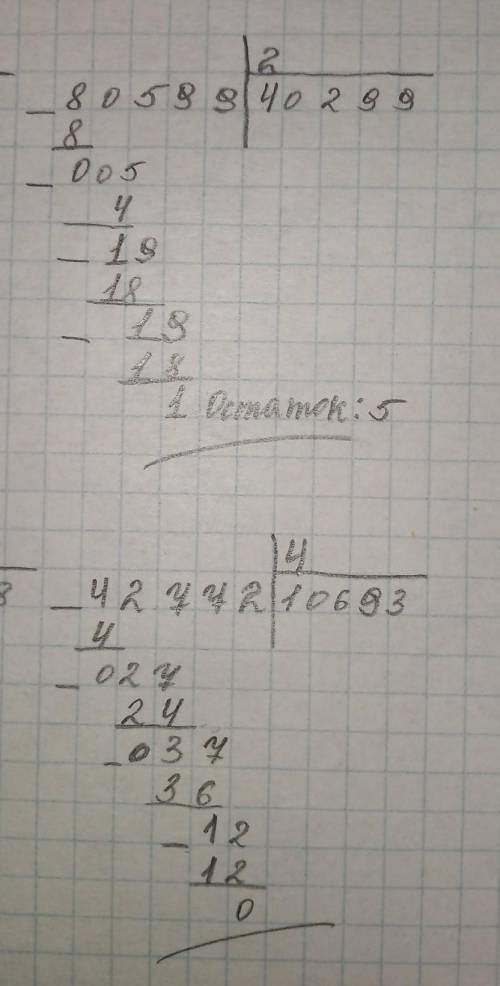 2
80599 40299
8
005
4
19
18
19
18
1 Остаток: 5
4
42772 10693
4
027
24
037
36
12
12
0